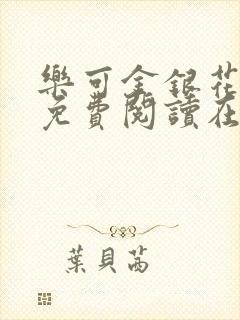 樂可金銀花
免費閱讀在
葉貝茜